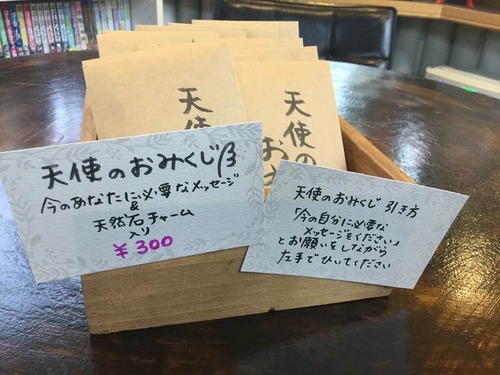 天使の
天使の
お
天使のおみくじβ
今のあなたに必要なメッセージ
&
天然石チャーム
入り
¥300
天使のおみくじ 引き方
「今の自分に必要な
メッセージをください」
とお願いをしながら
左手でひいてください